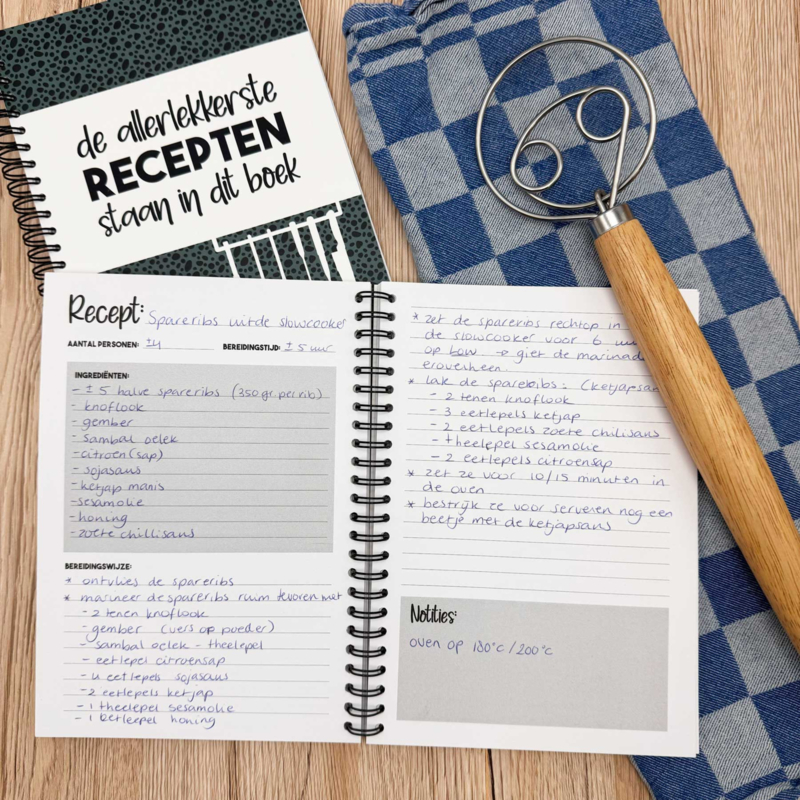 de allerlekkerste
RECEPTEN
staan in dit boek
Recept: Spareribs uit de slowcooker
AANTAL PERSONEN: ±4 BEREIDINGSTIJD: ± 5 uur
INGREDIËNTEN:
- ± 5 halve spareribs (350 gr. per rib)
- knoflook
- gember
- sambal oelek
- citroen(sap)
- sojasaus
- ketjap manis
- sesamolie
- honing
- zoete chillisaus
BEREIDINGSWIJZE:
* ontvlies de spareribs
* marineer de spareribs ruim tevoren met
- 2 tenen knoflook
- gember (vers op poeder)
- sambal oelek - theelepel
- eetlepel citroensap
- 4 eetlepels sojasaus
- 2 eetlepels ketjap
- 1 theelepel sesamolie
- 1 eetleepel honing
* zet de spareribs rechtop in
de slowcooker voor 6
op low → giet de
eroverheen.
* lak de spareribs: (ketjapsau
- 2 tenen knoflook
- 3 eetlepels ketjap
- 2 eetlepels zoete chilisaus
- theelepel sesamolie
- 2 eetlepels citroensap
* zet ze voor 10/15 minuten in
de oven
* bestrijk ze voor serveren nog een
beetje met de ketjapsaus
Notities:
oven op 180°c / 200°c